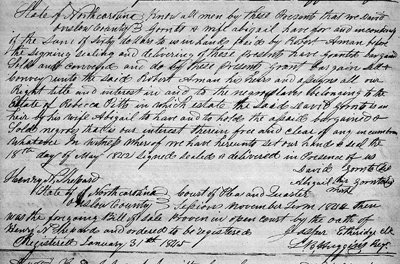 State of Northcarolina Know all men by these Presents that we David
Onslow County Goonto & wife abigail have for and inconsideration
of the Sum of forty dollars to us in hand Paid by Robert Aman before
the signing Sealing and delivery of these presents have granted bargand
Sold and Conveyed and do by these presents Grant bargain Sell
Convey unto the said Robert Aman his heirs and assigns all our
Right title and interest in and to the negroes belonging to the
Estate of Rebecca Pitts in which estate the said David Goonto is an
heir by his wife Abigail to have and to hold the aforesaid bargained
Sold negroes thats our interest therein free and clear of any incumbrance
Whatever In witness whereof we have hereunto set our hand & seal the
18th day of May 1824 Signed Sealed & delivered in Presence of us
David Goonto
Henry N Shepard Abigail her Goonto
mark
State of Northcarolina Court of Pleas and Quarter
Onslow County Sessions November Term 1824 then
was the forgoing Bill of Sale Proven in open court by the oath of
Henry N Sheward and ordered to be registered Jasper Ethridge
Registered January 31st 1825